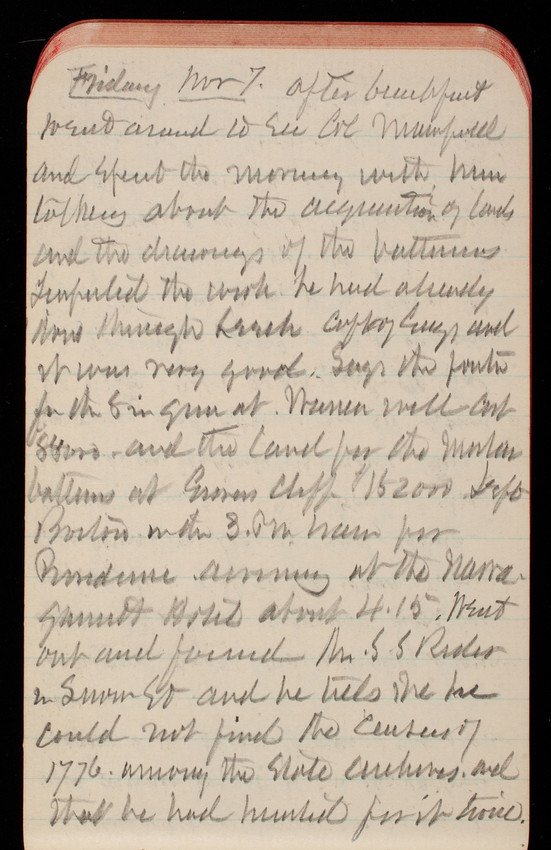 Friday Nov 7. after breakfast
went around to see Col Mansfield
and spent the morning with him
talking about the acquisition of lands
and the drawings of the batteries
Inspected the work he had already
done through Leach Capt of Engs and
it was very good. Says the
for the 8 in gun at Warren will cost
and the land for the Mortar
batteries at Grovers Cliff $152000 Left
Boston with 3. PM train for
Providence arriving at the Narra-
gansett Hotel about 4.15. Went
out and found Mr S S Rider
in Snow St and he tells me he
could not find the Census of
1776 among the State archives and
that he had hunted for it twice.